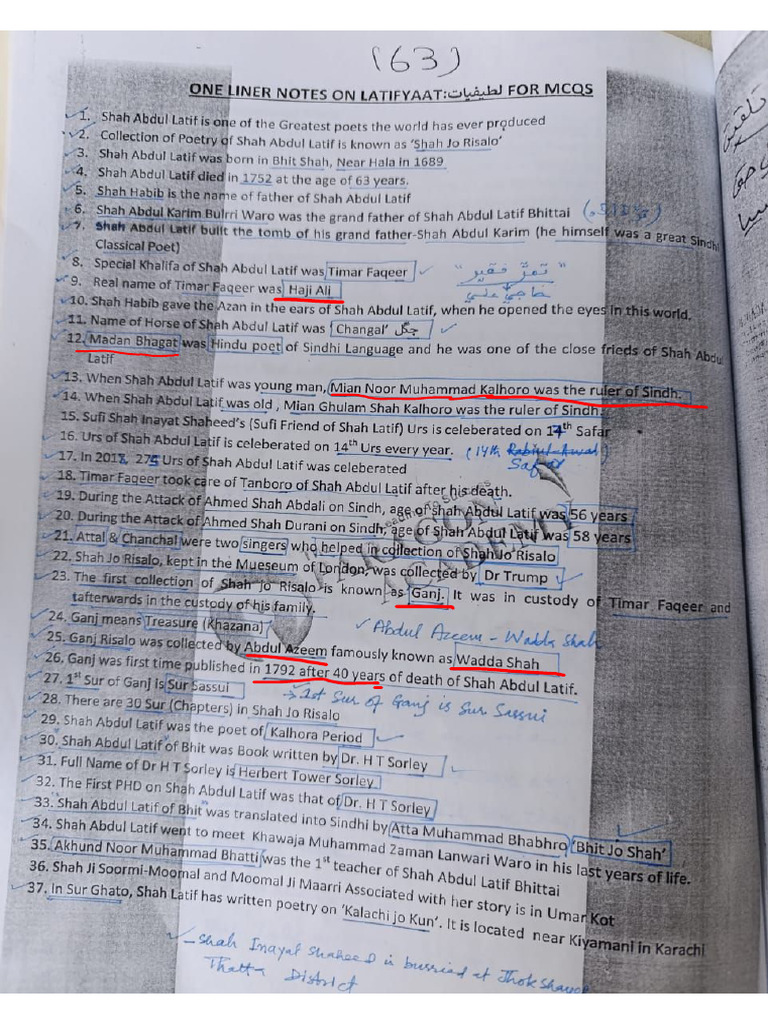 (63)
ONE LINER NOTES ON LATIFYAAT:لطيفيات FOR MCQS
1. Shah Abdul Latif is one of the Greatest poets the world has ever produced
2. Collection of Poetry of Shah Abdul Latif is known as ‘Shah Jo Risalo’
3. Shah Abdul Latif was born in Bhit Shah, Near Hala in 1689
4. Shah Abdul Latif died in 1752 at the age of 63 years.
5. Shah Habib is the name of father of Shah Abdul Latif
6. Shah Abdul Karim Bulrri Waro was the grand father of Shah Abdul Latif Bhittai
7. Shah Abdul Latif built the tomb of his grand father-Shah Abdul Karim (he himself was a great Sindhi
Classical Poet)
8. Special Khalifa of Shah Abdul Latif was Timar Faqeer
"تمر فقير"
9. Real name of Timar Faqeer was Haji Ali
حاجي علي
10. Shah Habib gave the Azan in the ears of Shah Abdul Latif, when he opened the eyes in this world.
11. Name of Horse of Shah Abdul Latif was Changal’
12. Madan Bhagat was Hindu poet of Sindhi Language and he was one of the close frieds of Shah Abdul
Latif
13. When Shah Abdul Latif was young man, Mian Noor Muhammad Kalhoro was the ruler of Sindh.
14. When Shah Abdul Latif was old , Mian Ghulam Shah Kalhoro was the ruler of Sindh.
15. Sufi Shah Inayat Shaheed’s (Sufi Friend of Shah Latif) Urs is celeberated on 14th Safar
16. Urs of Shah Abdul Latif is celebrated on 14th Urs every year. (14th Rabiul-Awal
Safar
17. In 2018, 275 Urs of Shah Abdul Latif was celeberated
18. Timar Faqeer took care of Tanboro of Shah Abdul Latif after his death.
19. During the Attack of Ahmed Shah Abdali on Sindh, age of shah Abdul Latif was 56 years
20. During the Attack of Ahmed Shah Durani on Sindh, age of Shah Abdul Latif was 58 years
21. Attal & Chanchal were two singers who helped in collection of Shah Jo Risalo
22. Shah Jo Risalo, kept in the Mueseum of London, was collected by Dr Trump
23. The first collection of Shah jo Risalo is known as Ganj. It was in custody of Timar Faqeer and
tafterwards in the custody of his family.
24. Ganj means Treasure (Khazana)
Abdul Azeem - Wadda Shah
25. Ganj Risalo was collected by Abdul Azeem famously known as Wadda Shah
26. Ganj was first time published in 1792 after 40 years of death of Shah Abdul Latif.
27. 1st Sur of Ganj is Sur Sassui
→ 1st Sur of Ganj is Sur Sassui
28. There are 30 Sur (Chapters) in Shah Jo Risalo
29. Shah Abdul Latif was the poet of Kalhora Period
30. Shah Abdul Latif of Bhit was Book written by Dr. H T Sorley
31. Full Name of Dr H T Sorley is Herbert Tower Sorley
32. The First PHD on Shah Abdul Latif was that of Dr. H T Sorley
33. Shah Abdul Latif of Bhit" was translated into Sindhi by Atta Muhammad Bhabhro ‘Bhit Jo Shah’
34. Shah Abdul Latif went to meet Khawaja Muhammad Zaman Lanwari Waro in his last years of life.
35. Akhund Noor Muhammad Bhatti was the 1st teacher of Shah Abdul Latif Bhittai
36. Shah Ji Soormi-Moomal and Moomal Ji Maarri Associated with her story is in Umar Kot
37. In Sur Ghato, Shah Latif has written poetry on ‘Kalachi jo Kun’. It is located near Kiyamani in Karachi
Shah Inayat Shaheed is burried at Jhok
Thatta District